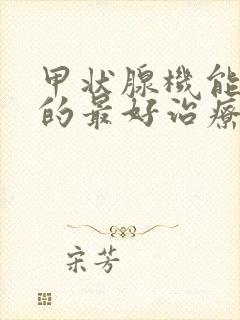 甲状腺機能
的最好治療
宋芳